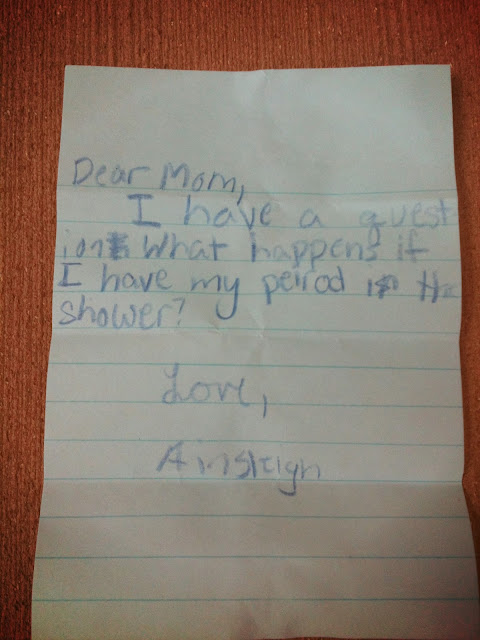 Dear Mom,
I have a quest
ion What happens if
I have my peirod in the
shower?
Love,
Ainsleigh